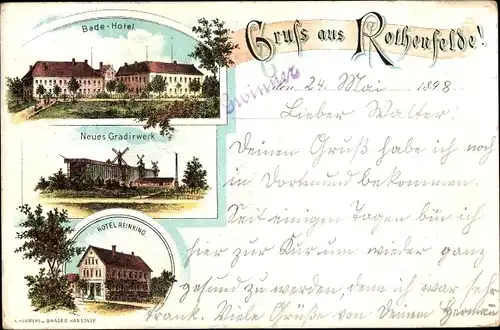 Bade-Hotel
Gruß aus Rothenfelde!
Den 24. Mai 1898
Lieber Walter!
Neues Gradirwerk
Deinen Gruß habe ich noch
in Dortmund bekommen.
Seit einigen Tagen bin ich
hier zur Kur um wieder ganz
HOTEL REINKING.
gesund zu werden, denn ich war sehr
krank. Viele Grüße von Deinem Hermann
HANNOVER